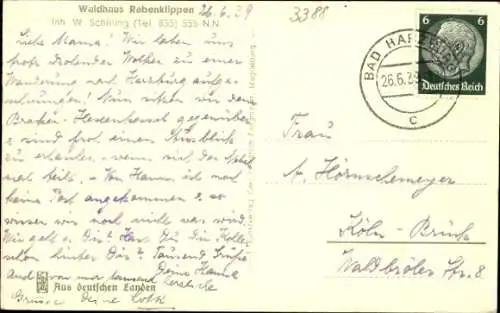 Waldhaus Rabenklippen 26.6.39
Inh. W. Schilling (Tel. 855) 555 N.N.
3388
Liebe Mama! Wir haben uns
trotz drohender Wolken zu einer
Wanderung nach Harzburg aufge-
schwungen! Nun sitzen wir dem
Brocken- gegenüber
u. sind froh einen Ausblick
zu erhaschen - wenn sich der Nebel
mal teilt. - Von Hanns ist noch
keine Post angekommen u. so
wissen wir noch nicht was wird.
Wie geht es Dir? Hast Du die
schon hinter Dir? Tausend Grüße
Deine Hanne
Auch von mir tausend herzliche
Grüsse Deine
Aus deutschen Landen
BAD HARZBURG
26.6.39
c
6 6
Deutsches Reich
Frau
A. Hörnschemeyer
Köln - Brück
Waldbröler Str. 8